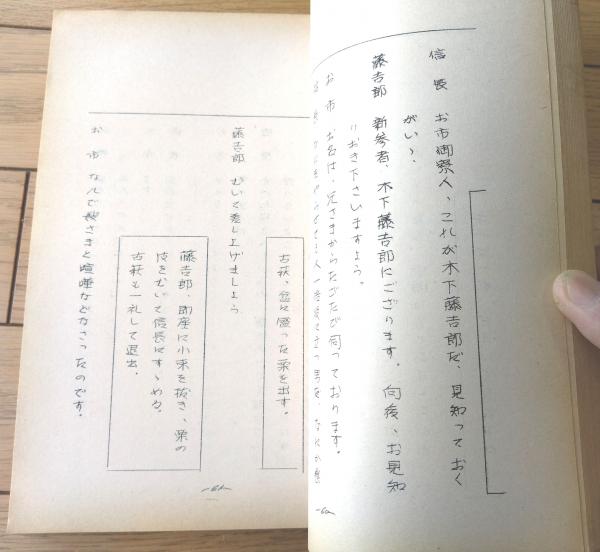 信長　お市御寮人、これが木下藤吉郎だ、見知っておく
がいゝ、
藤吉郎　新参者、木下藤吉郎にござります。向後、お見知
りおき下さいますよう。
お市　お名は、兄さまからたびたび伺っております。
古萩、盆に盛った栗を出す。
藤吉郎　むいて差し上げましよう
藤吉郎、即座に小束を抜き、栗の
皮をむいて信長にすゝめる。
古萩も一礼して退出。
お市　なんで夜さまと喧嘩などなさったのです。